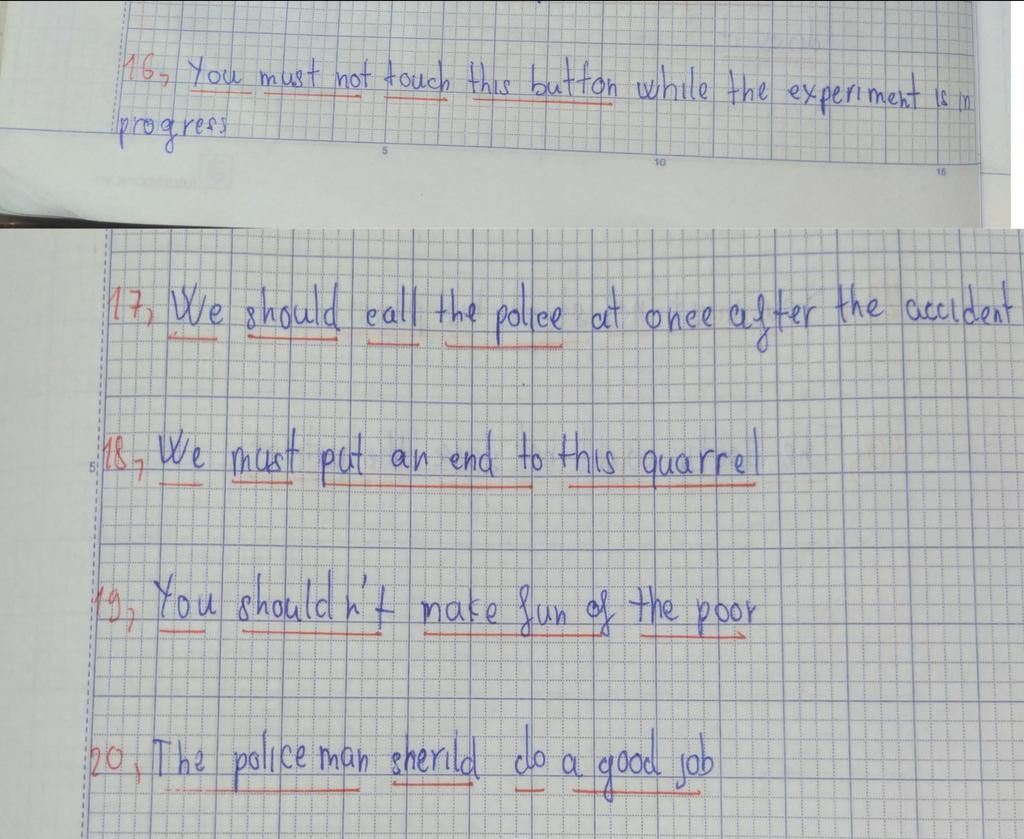 16, You must not touch this button while the experiment is in
progress
5 10 15
17, We should call the police at once after the accident
5
18, We must put an end to this quarrel
19, You shouldn't make fun of the poor
20, The policeman sherild do a good job